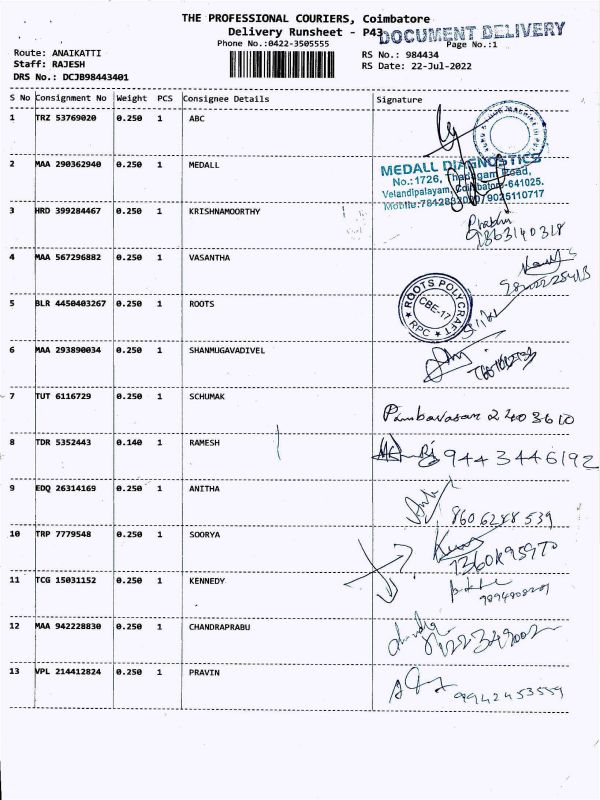 THE PROFESSIONAL COURIERS, Coimbatore
Delivery Runsheet - P43
DOCUMENT DELIVERY
Phone No.:0422-3505555
Page No.:1
Route: ANAIKATTI
RS No.: 984434
Staff: RAJESH
RS Date: 22-Jul-2022
DRS No.: DCJB98443401
S No Consignment No Weight PCS Consignee Details Signature
1 TRZ 53769020 0.250 1 ABC
2 MAA 290362940 0.250 1 MEDALL
MEDALL DIAGNOSTICS
No.:1726, Thadagam Road,
Velandipalayam, Coimbatore-641025.
9025110717
3 HRD 399284467 0.250 1 KRISHNAMOORTHY
Prabhu
9863140318
4 MAA 567296882 0.250 1 VASANTHA
5 BLR 4450403267 0.250 1 ROOTS
ROOTS POLYCRAFT
CBE-17
RPC
6 MAA 293890034 0.250 1 SHANMUGAVADIVEL
7 TUT 6116729 0.250 1 SCHUMAK
Pambavasan 2403610
8 TDR 5352443 0.140 1 RAMESH
9443446192
9 EDQ 26314169 0.250 1 ANITHA
8606288539
10 TRP 7779548 0.250 1 SOORYA
11 TCG 15031152 0.250 1 KENNEDY
12 MAA 942228830 0.250 1 CHANDRAPRABU
13 VPL 214412824 0.250 1 PRAVIN
99942453559